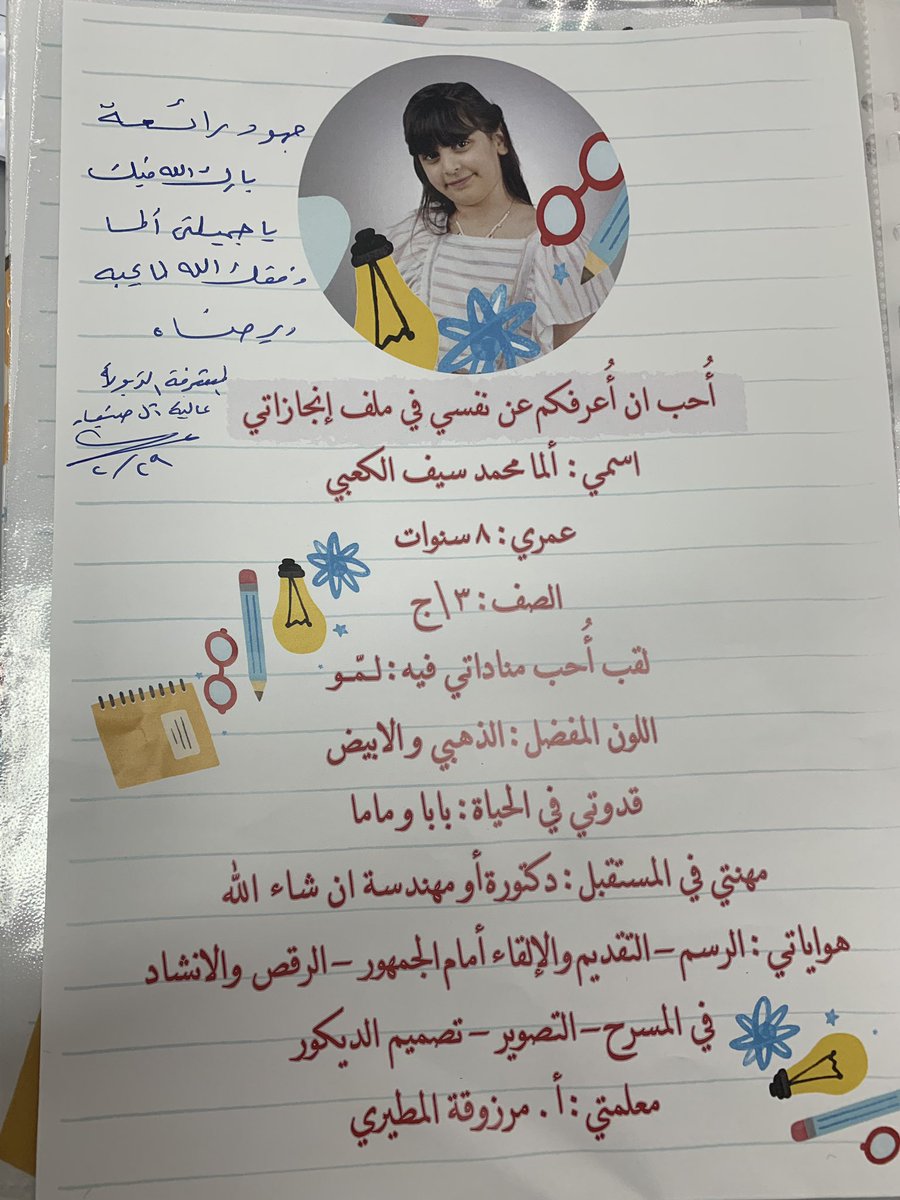 جهود رائعة
بارك الله فيك
يا جميلتي ألما
وفقك الله لما يحبه
ويرضاه
المشرفة التربوية
عالية آل
٢/٢٩
أُحب ان أُعرفكم عن نفسي في ملف إنجازاتي
اسمي : ألما محمد سيف الكعبي
عمري : ٨ سنوات
الصف : ٣\ج
لقب أُحب مناداتي فيه : لـمّـو
اللون المفضل : الذهبي و الابيض
قدوتي في الحياة : بابا و ماما
مهنتي في المستقبل : دكتورة أو مهندسة ان شاء الله
هواياتي : الرسم – التقديم والإلقاء أمام الجمهور – الرقص والانشاد
في المسرح – التصوير – تصميم الديكور
معلمتي : أ . مرزوقة المطيري